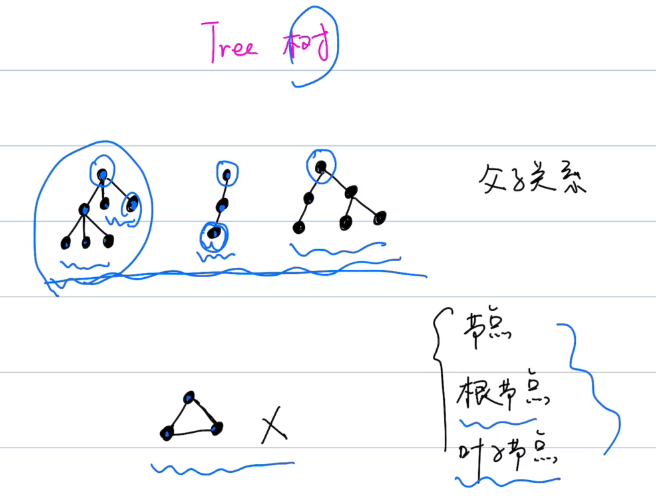 Tree 树
父子关系
节点
根节点
叶子节点
X